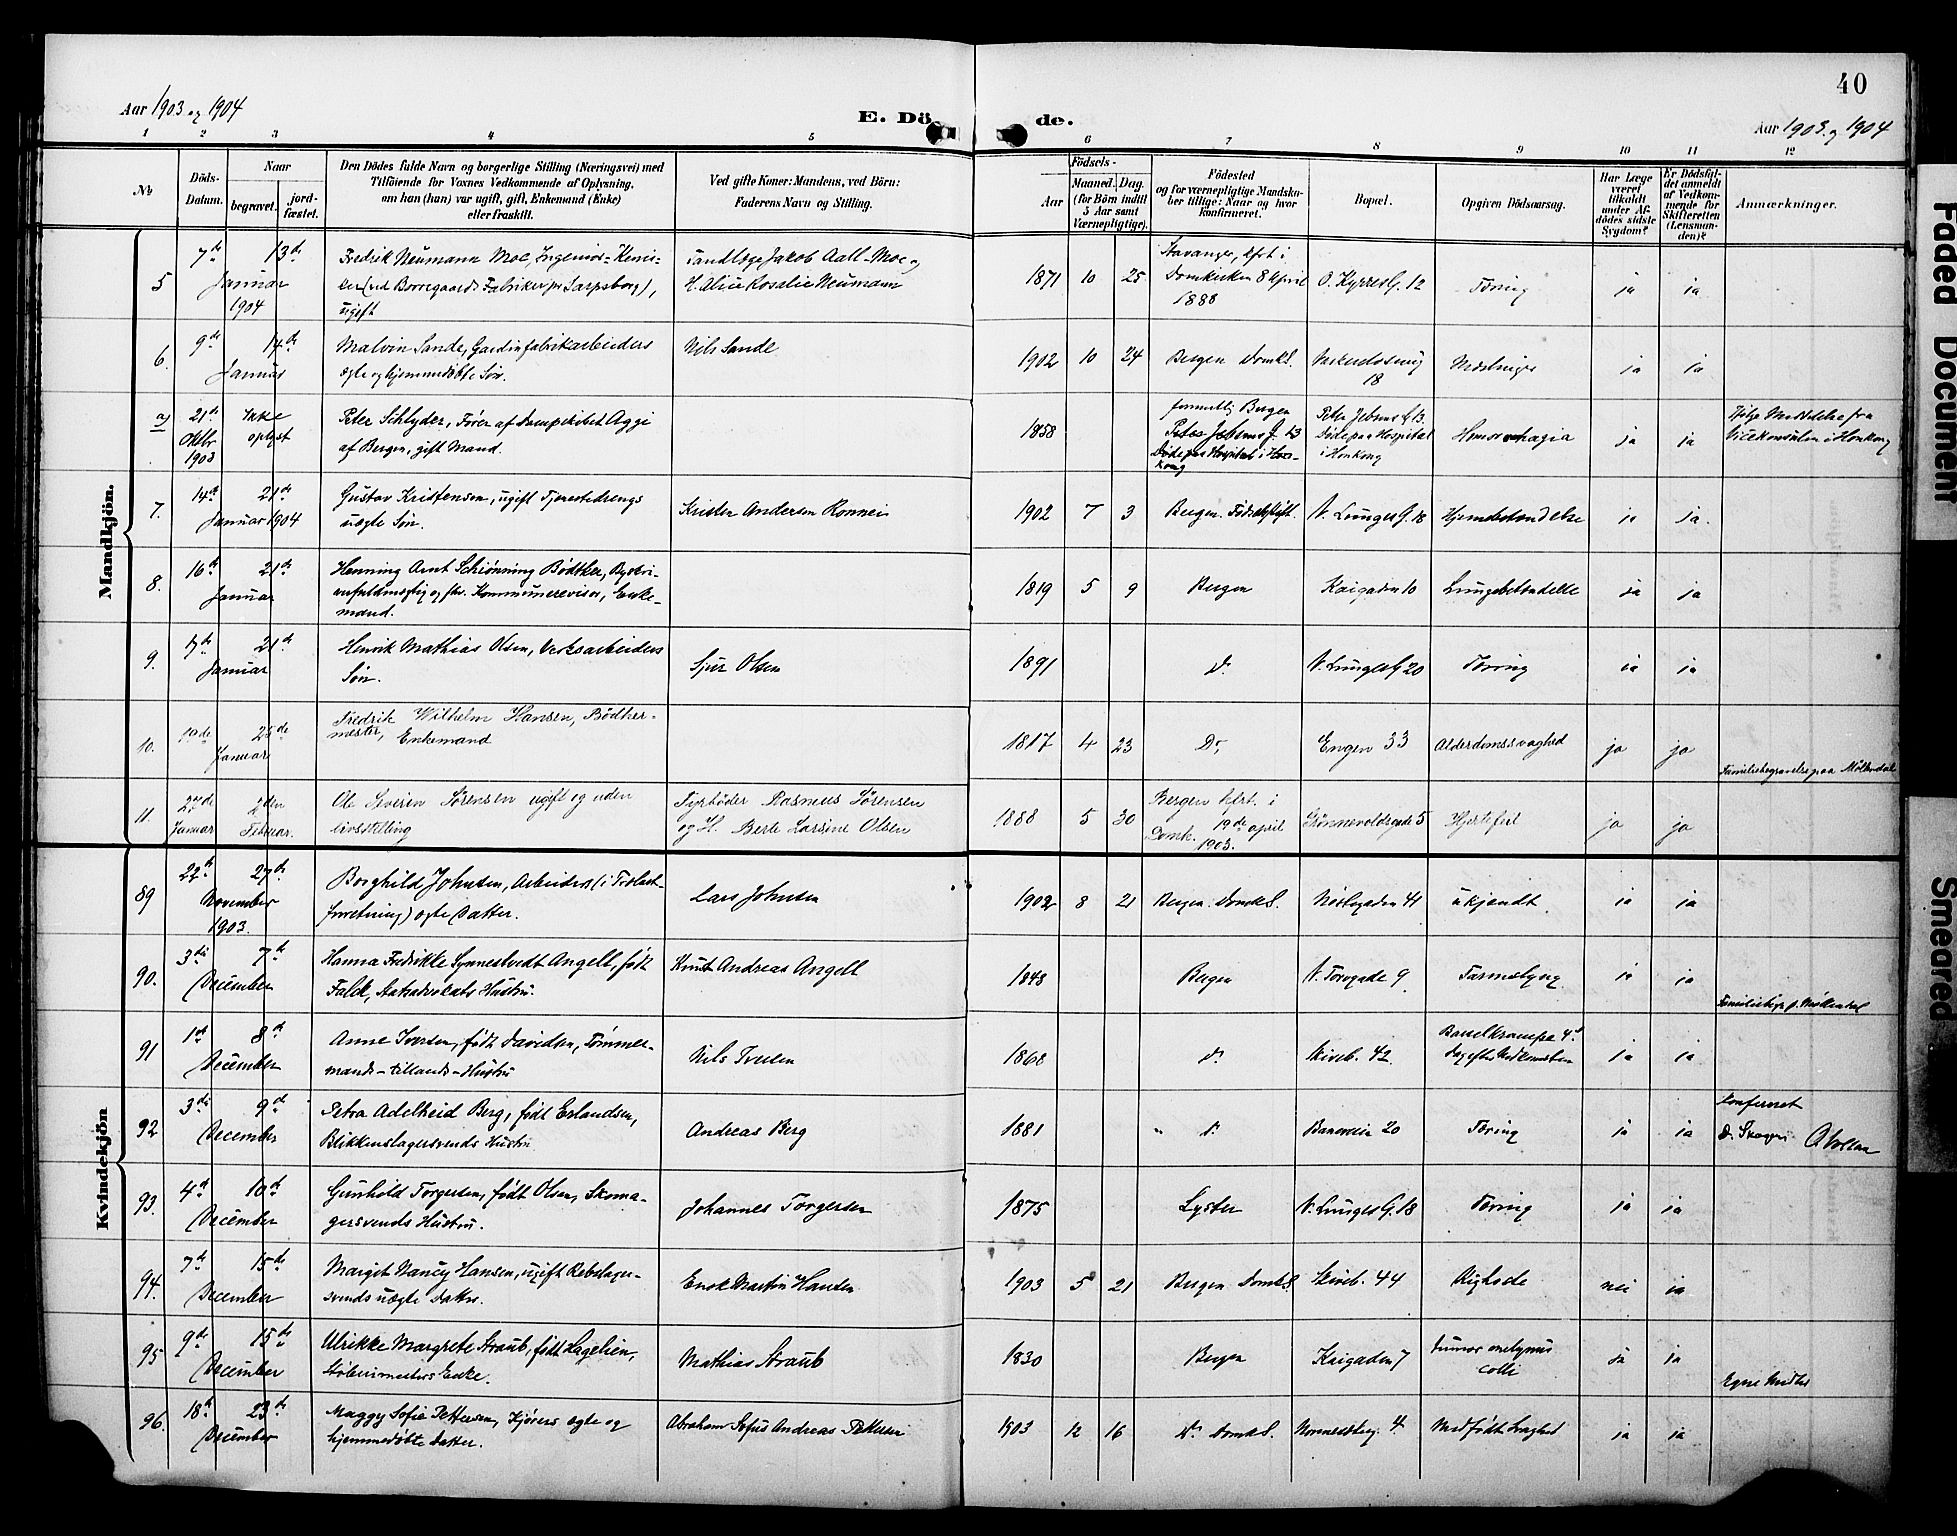 40
Aar 1903 og 1904
E. Dö de.
Aar 1903 og 1904
1 2 3 4 5 6 7 8 9 10 11 12
No
Döds-Datum.
Naar
begravet.
jord-fæstet.
Den Dödes fulde Navn og borgerlige Stilling (Næringsvei) med
Tilföiende for Voxnes Vedkommende af Oplysning,
om han (hun) var ugift, gift, Enkemand (Enke)
eller fraskilt.
Ved gifte Koner: Mandens, ved Börn:
Faderens Navn og Stilling.
Aar
Födsels-
Maaned. Dag.
(for Börn indtil
5 Aar samt
Værnepligtige).
Födested
og for værnepligtige Mandska-
ber tillige: Naar og hvor
konfirmeret.
Bopæl.
Opgiven Dödsaarsag.
Har Læge
været
tilkaldt
under Af-
dödes sidste
Sygdom?
Er Dödsfal-
det anmeldt
af Vedkom-
mende for
Skifteretten
(Lensman-
den)?
Anmærkninger.
Mandkjön.
5
7de 13de
Januar
1904
Fredrik Neumann Moe, Ingeniør-Kemi-
ker (ved Borregaards Fabriker pr Sarpsborg),
ugift
Tandlæge Jakob Aall-Moe og
H. Alice Rosalie Neumann
1871 10 25
Stavanger, kfrt i
Domkirken 8 April
1888
O. Kyrres G. 12
Tæring
ja ja
6.
9de 14de
Januar
Malvin Sande, Gardinfabrikarbeiders
ægte og hjemmedøbte Søn.
Nils Sande
1902 10 24
Bergen Domk S.
18
Meslinger
ja ja
a)
21de Ikke
Oktbr oplyst
1903
Peter Schlyder, Fører af Dampskibet Aggi
af Bergen, gift Mand.
1858
Bergen
Peter Jebsens G. 13
Døde paa Hospital i Hon-
kong
Peter Jebsens G 13.
Døde paa Hospital
i Honkong
Hemorrhagia
ja ja
Ifølge Meddelelse fra
Vicekonsulen i Honkong
7.
14de 21de
Januar 1904
Gustav Kristensen, ugift Tjenestedrengs
uægte Søn.
Kristen Andersen Ronnei
1902 7 3
Bergen. Fødselsstift.
N. Lunges G. 18
Hjernebetændelse
ja ja.
8.
16de 21de
Januar
Henning Arnt Schiønning Bødtker, Byskri-
verfuldmægtig og fhv. Kommunerevisor, Enke-
mand.
1819 5 9
Bergen
Kaigaden 10
Lungebetændelse
ja ja
9.
21de
Januar
Henrik Mathias Olsen, Verksarbeiders
Søn.
Sjur Olsen
1891
do
N. Lunges G 20
Tæring
ja ja
10.
19de 25de
Januar
Fredrik Wilhelm Hansen, Bødker-
mester, Enkemand
1817 4 23
Do,
Engen 33
Alderdomssvaghed
ja ja
Familiebegravelse paa Møllendal
11.
27de 2den
Januar Februar.
Ole Severin Sørensen ugift og uden
livsstilling
Fyrbøder Rasmus Sørensen
og H. Berte Larsine Olsen
1888 5 30
Bergen kfrt. i
Domk. 19de april
1903.
5
Hjertefeil
ja ja
Kvindekjön
89
22de 27de
November
1903.
Borghild Johnsen, Arbeiders (i Trælast-
forretning) ægte Datter.
Lars Johnsen
1902 8 21
Bergen. Domk S.
41
ukjendt
ja ja
90.
3die 7de
December
Hanna Fredrikke Synnestvedt Angell, født
Falck, Statsadvokats Hustru.
Knut Andreas Angell
1848
Bergen
N. Torvgade 9
Tarmslyng
ja ja
Familiebegr. p. Møllendal
91
1ste 8de
December
Anne Iversen, født Davidsen, Tømmer-
mands-tillands-Hustru
Nils Iversen
1868
do
Skiveb. 42
Barselkrampe 4de
Dag efter Nedkomsten
ja ja
92
3die 9de
December
Petra Adelheid Berg, født Erlandsen,
Blikkenslagersvends Hustru
Andreas Berg
1881
" do
Baneveien 20
Tæring
ja ja
Konfereret
93.
4de 10de
December
Gunhild Torgersen, født Olsen, Skoma-
gersvends Hustru.
Johannes Torgersen
1875
Lyster
N. Lunges G. 18
Tæring
ja ja
94.
7de 15de
December
Margit Nancy Hansen, ugift Rebslager-
svends uægte Datter.
Enok Martin Hansen
1903 5 21
Bergen Domk S.
Skiveb. 44
nei ja
95
9de 15de
December
Ulrikke Margrete Straub, født Hagelien,
Støbermesters Enke.
Mathias Straub
1830
Bergen
Kaigaden 7
Tumor malignus
colli
ja ja
Egne Midler
96.
18de 23de
December
Maggy Sofie Pettersen, Kjørers ægte og
hjemmedøbte Datter.
Abraham Sofus Andreas Pettersen
1903 12 16
Do Domk S.
4
Medfødt Svaghed
ja ja
Faded Document
Smeared